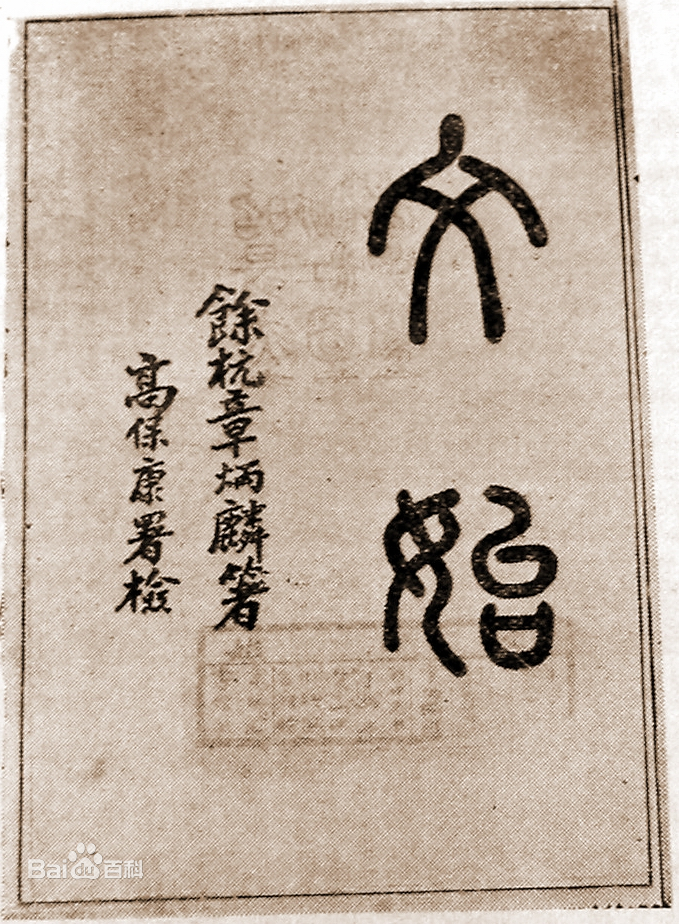 文始
餘杭章炳麟箸
高保康署檢
Baidu百科